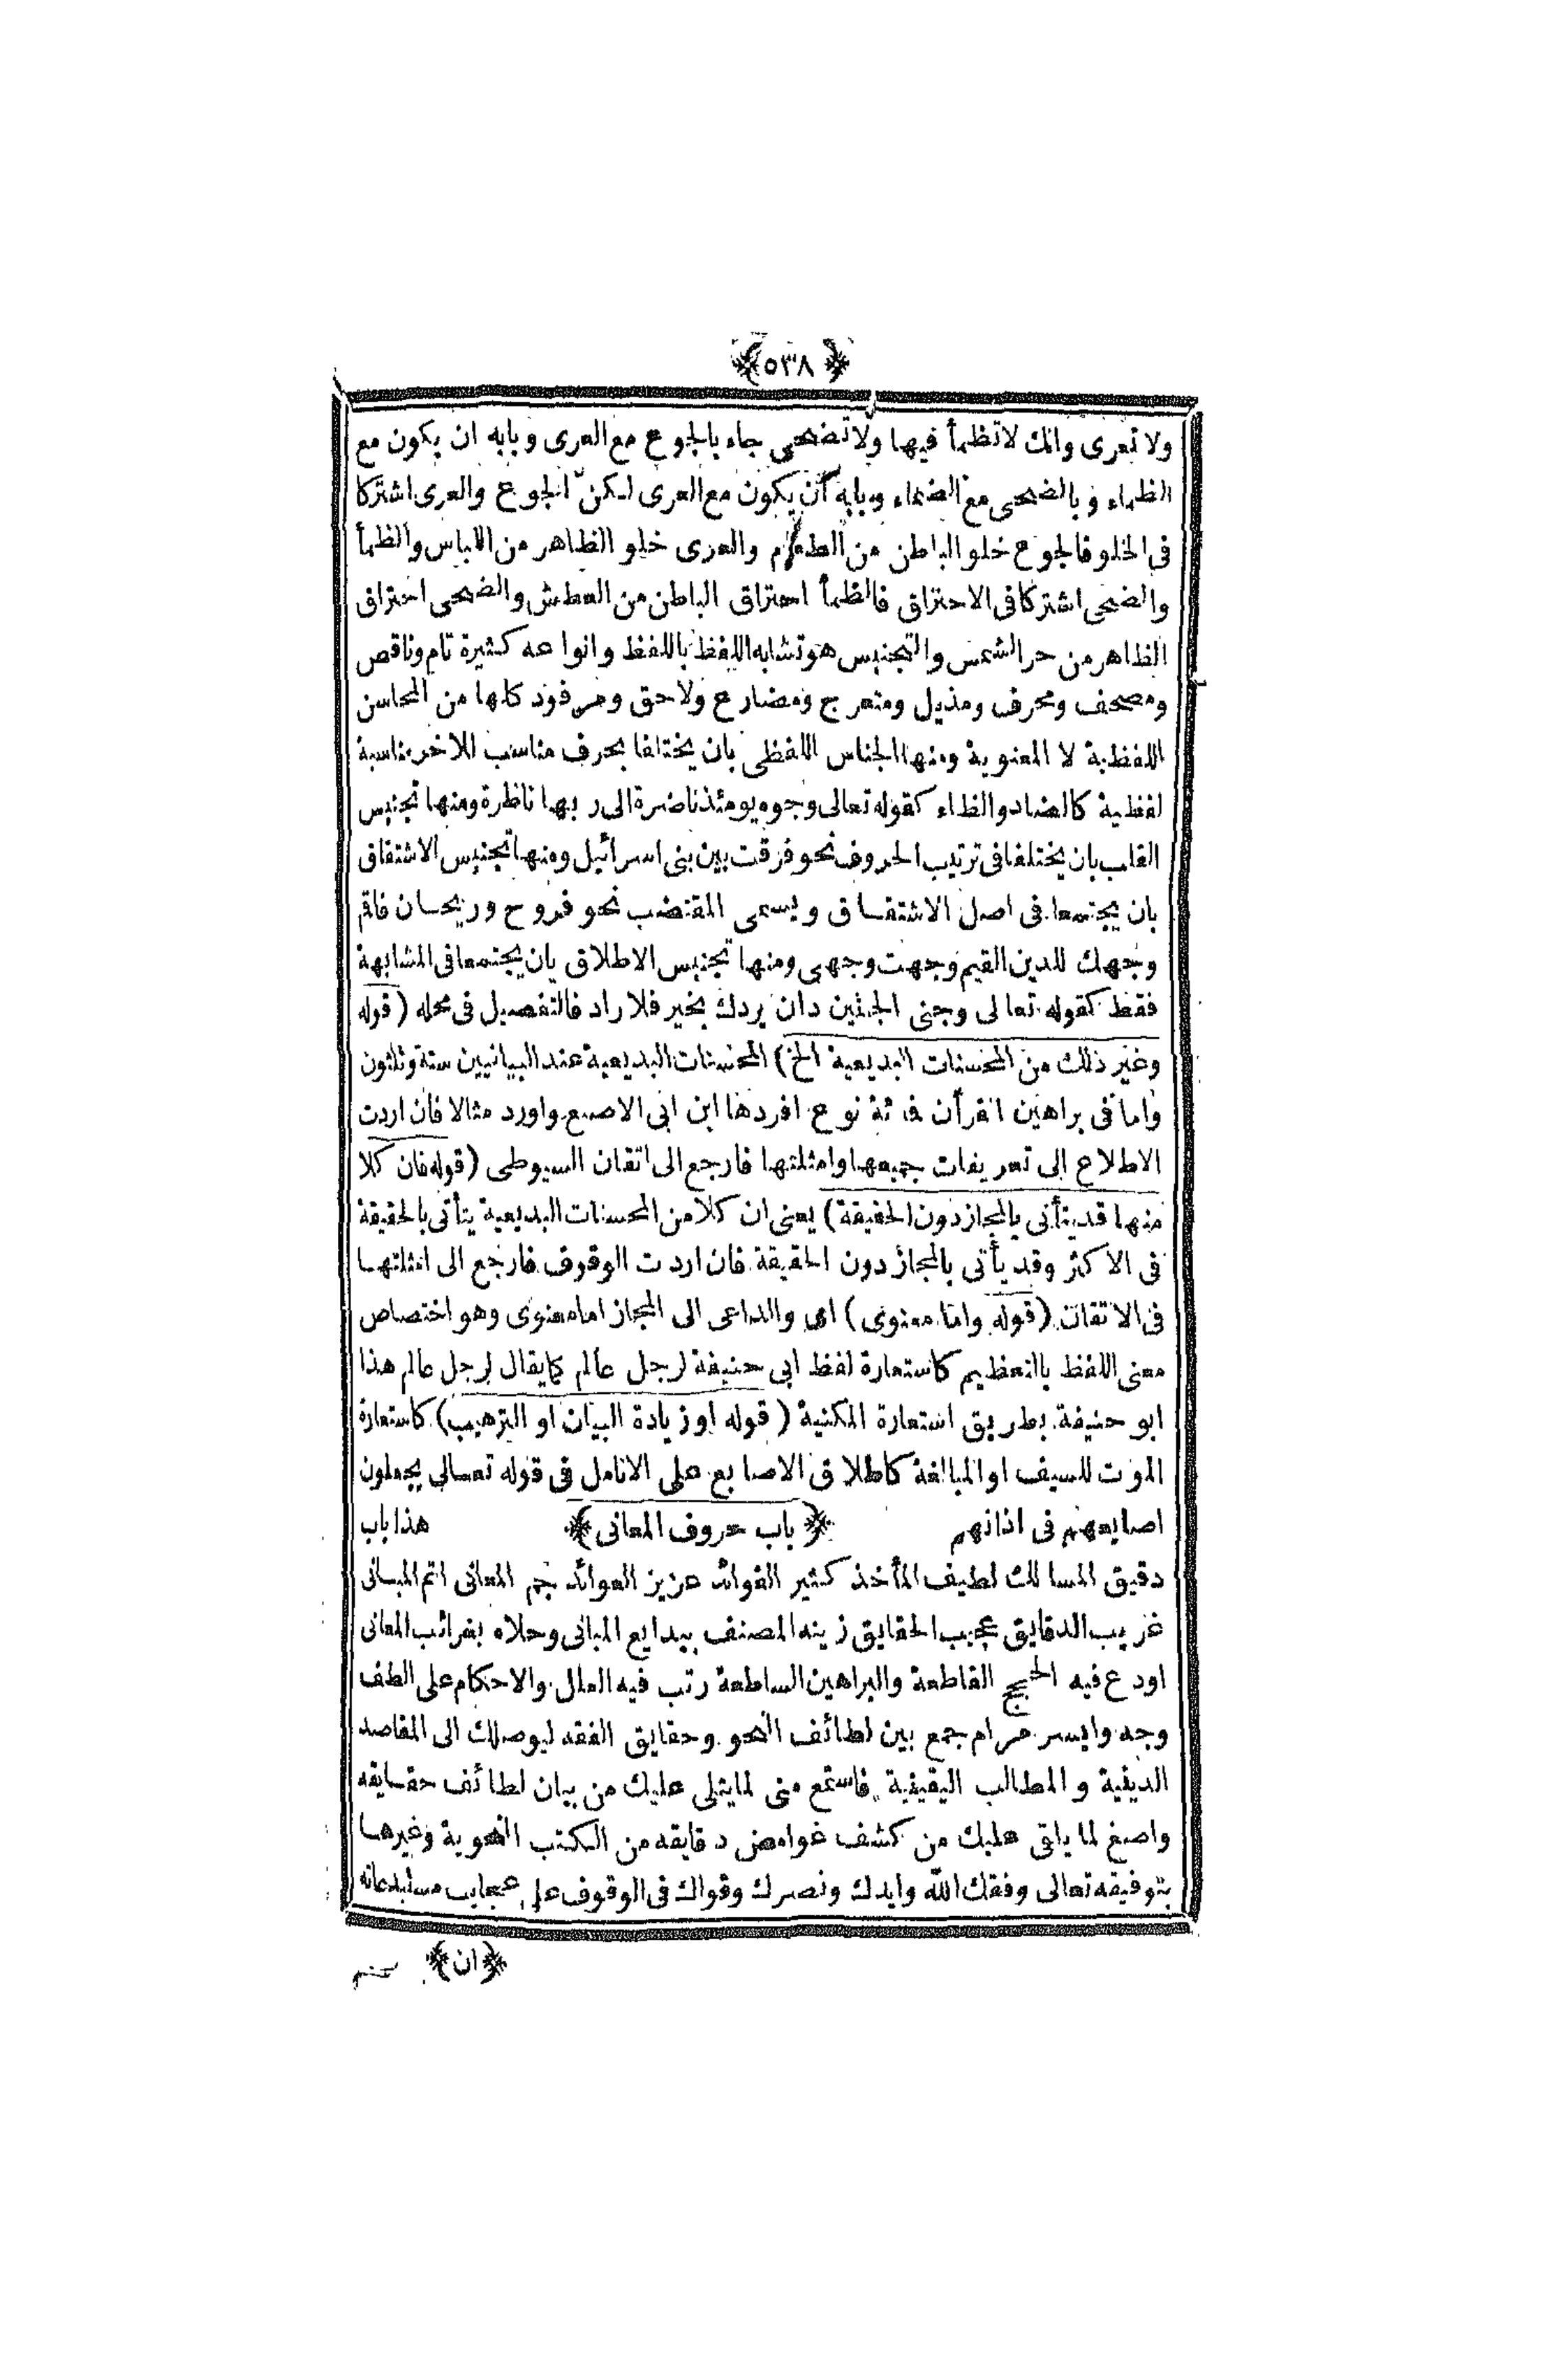 ﴿٥٣٨﴾
ولا تعرى وانك لا تظمأ فيها ولا تضحى جاء بالجوع مع العرى وبابه ان يكون مع
الظماء وبالضحى مع الضماء وبابه أن يكون مع العرى لكنّ الجوع والعرى اشتركا
فى الخلو فالجوع خلو الباطن من الطعام والعرى خلو الظاهر من اللباس والظمأ
والضحى اشتركا فى الاحتراق فالظمأ احتراق الباطن من العطش والضحى احتراق
الظاهر من حر الشمس والتجنيس هو تشابه اللفظ باللفظ وانواعه كثيرة تام وناقص
ومصحف ومحرف ومذيل ومتعرج ومضارع ولاحق ومرفود كلها من المحاسن
اللفظية لا المعنوية ومنها الجناس اللفظى بان يختلفا بحرف مناسب للاخر مناسبة
لفظية كالضاد والظاء كقوله تعالى وجوه يومئذ ناضرة الى ربها ناظرة ومنها تجنيس
القلب بان يختلفا فى ترتيب الحروف نحو فرقت بين بنى اسرائيل ومنها تجنيس الاشتقاق
بان يجتمعا فى اصل الاشتقاق ويسمى المقتضب نحو فروح وريحان فاقم
وجهك للدين القيم وجهت وجهى ومنها تجنيس الاطلاق بان يجتمعا فى المشابهة
فقط كقوله تعالى وجنى الجنتين دان يردك بخير فلا راد فالتفصيل فى محله (قوله
وغير ذلك من المحسنات البديعية الخ) المحسنات البديعية عند البيانيين ستة وثلثون
واما فى براهين القرأن نوع افردها ابن ابى الاصبع واورد مثالا فان اردت
الاطلاع الى تعريفات جميعها وامثلتها فارجع الى اتقان السيوطى (قوله فان كلا
منها قد يتأتى بالمجاز دون الحقيقة) يعنى ان كلا من المحسنات البديعية يتأتى بالحقيقة
فى الاكثر وقد يأتى بالمجاز دون الحقيقة فان اردت الوقوف فارجع الى امثلتها
فى الاتقان (قوله واما معنوى) اى والداعى الى المجاز اما معنوى وهو اختصاص
معنى اللفظ بالتعظيم كاستعارة لفظ ابى حنيفة لرجل عالم كما يقال لرجل عالم هذا
ابو حنيفة بطريق استعارة المكنية (قوله او زيادة البيان او الترهيب) كاستعارة
الموت للسيف او المبالغة كاطلاق الاصابع على الانامل فى قوله تعالى يجعلون
اصابعهم فى اذانهم ﴿باب حروف المعانى﴾ هذا باب
دقيق المسالك لطيف المأخذ كثير الفوائد عزيز العوائد جم المعانى اتم المبانى
غريب الدقايق عجيب الحقايق زينه المصنف ببدايع المبانى وحلاه بغرائب المعانى
اودع فيه الحجج القاطعة والبراهين الساطعة رتب فيه العلل والاحكام على الطف
وجه وايسر مرام جمع بين لطائف النحو وحقايق الفقه ليوصلك الى المقاصد
الدينية والمطالب اليقينية فاستمع منى لما يتلى عليك من بيان لطائف حقايقه
واصغ لما يلقى عليك من كشف غوامض دقايقه من الكتب النحوية وغيرها
بتوفيقه تعالى وفقك اللّه وايدك ونصرك وقواك فى الوقوف على عجايب مستبدعاته
﴿ان﴾